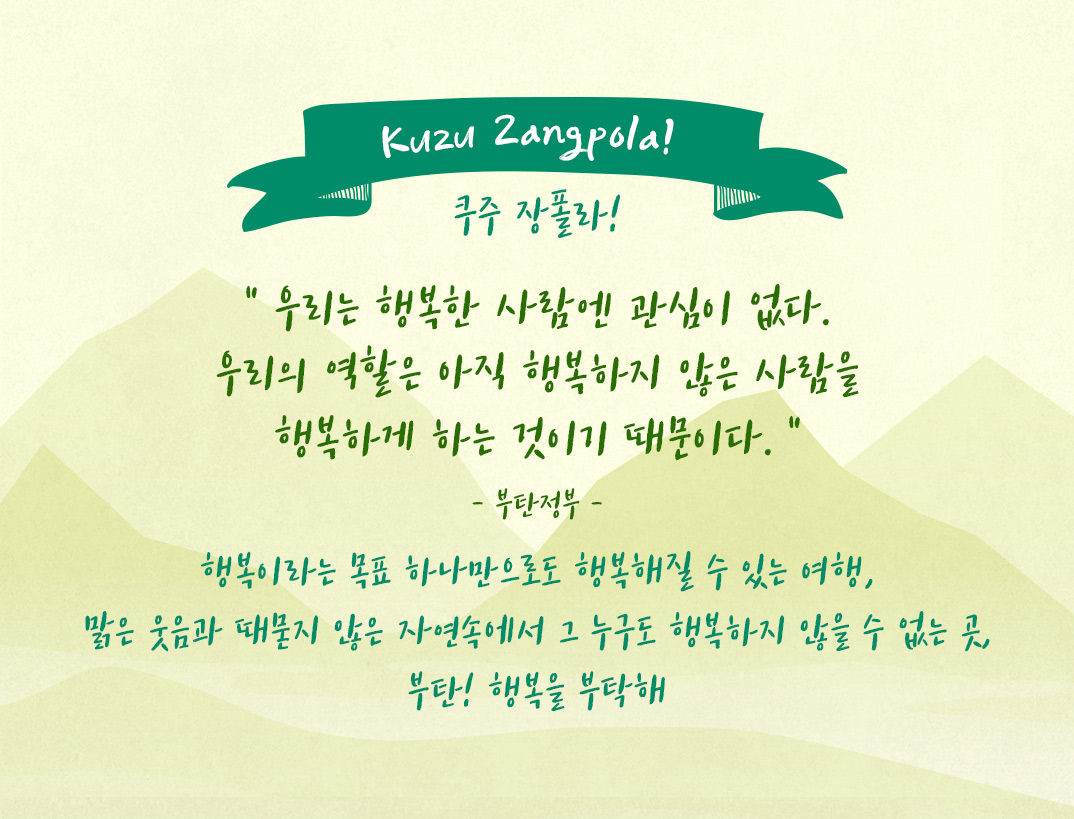 Kuzu Zangpola!
쿠주 장폴라!
" 우리는 행복한 사람에겐 관심이 없다.
우리의 역할은 아직 행복하지 않은 사람을
행복하게 하는 것이기 때문이다. "
- 부탄정부 -
행복이라는 목표 하나만으로도 행복해질 수 있는 여행,
맑은 웃음과 때묻지 않은 자연속에서 그 누구도 행복하지 않을 수 없는 곳,
부탄! 행복을 부탁해